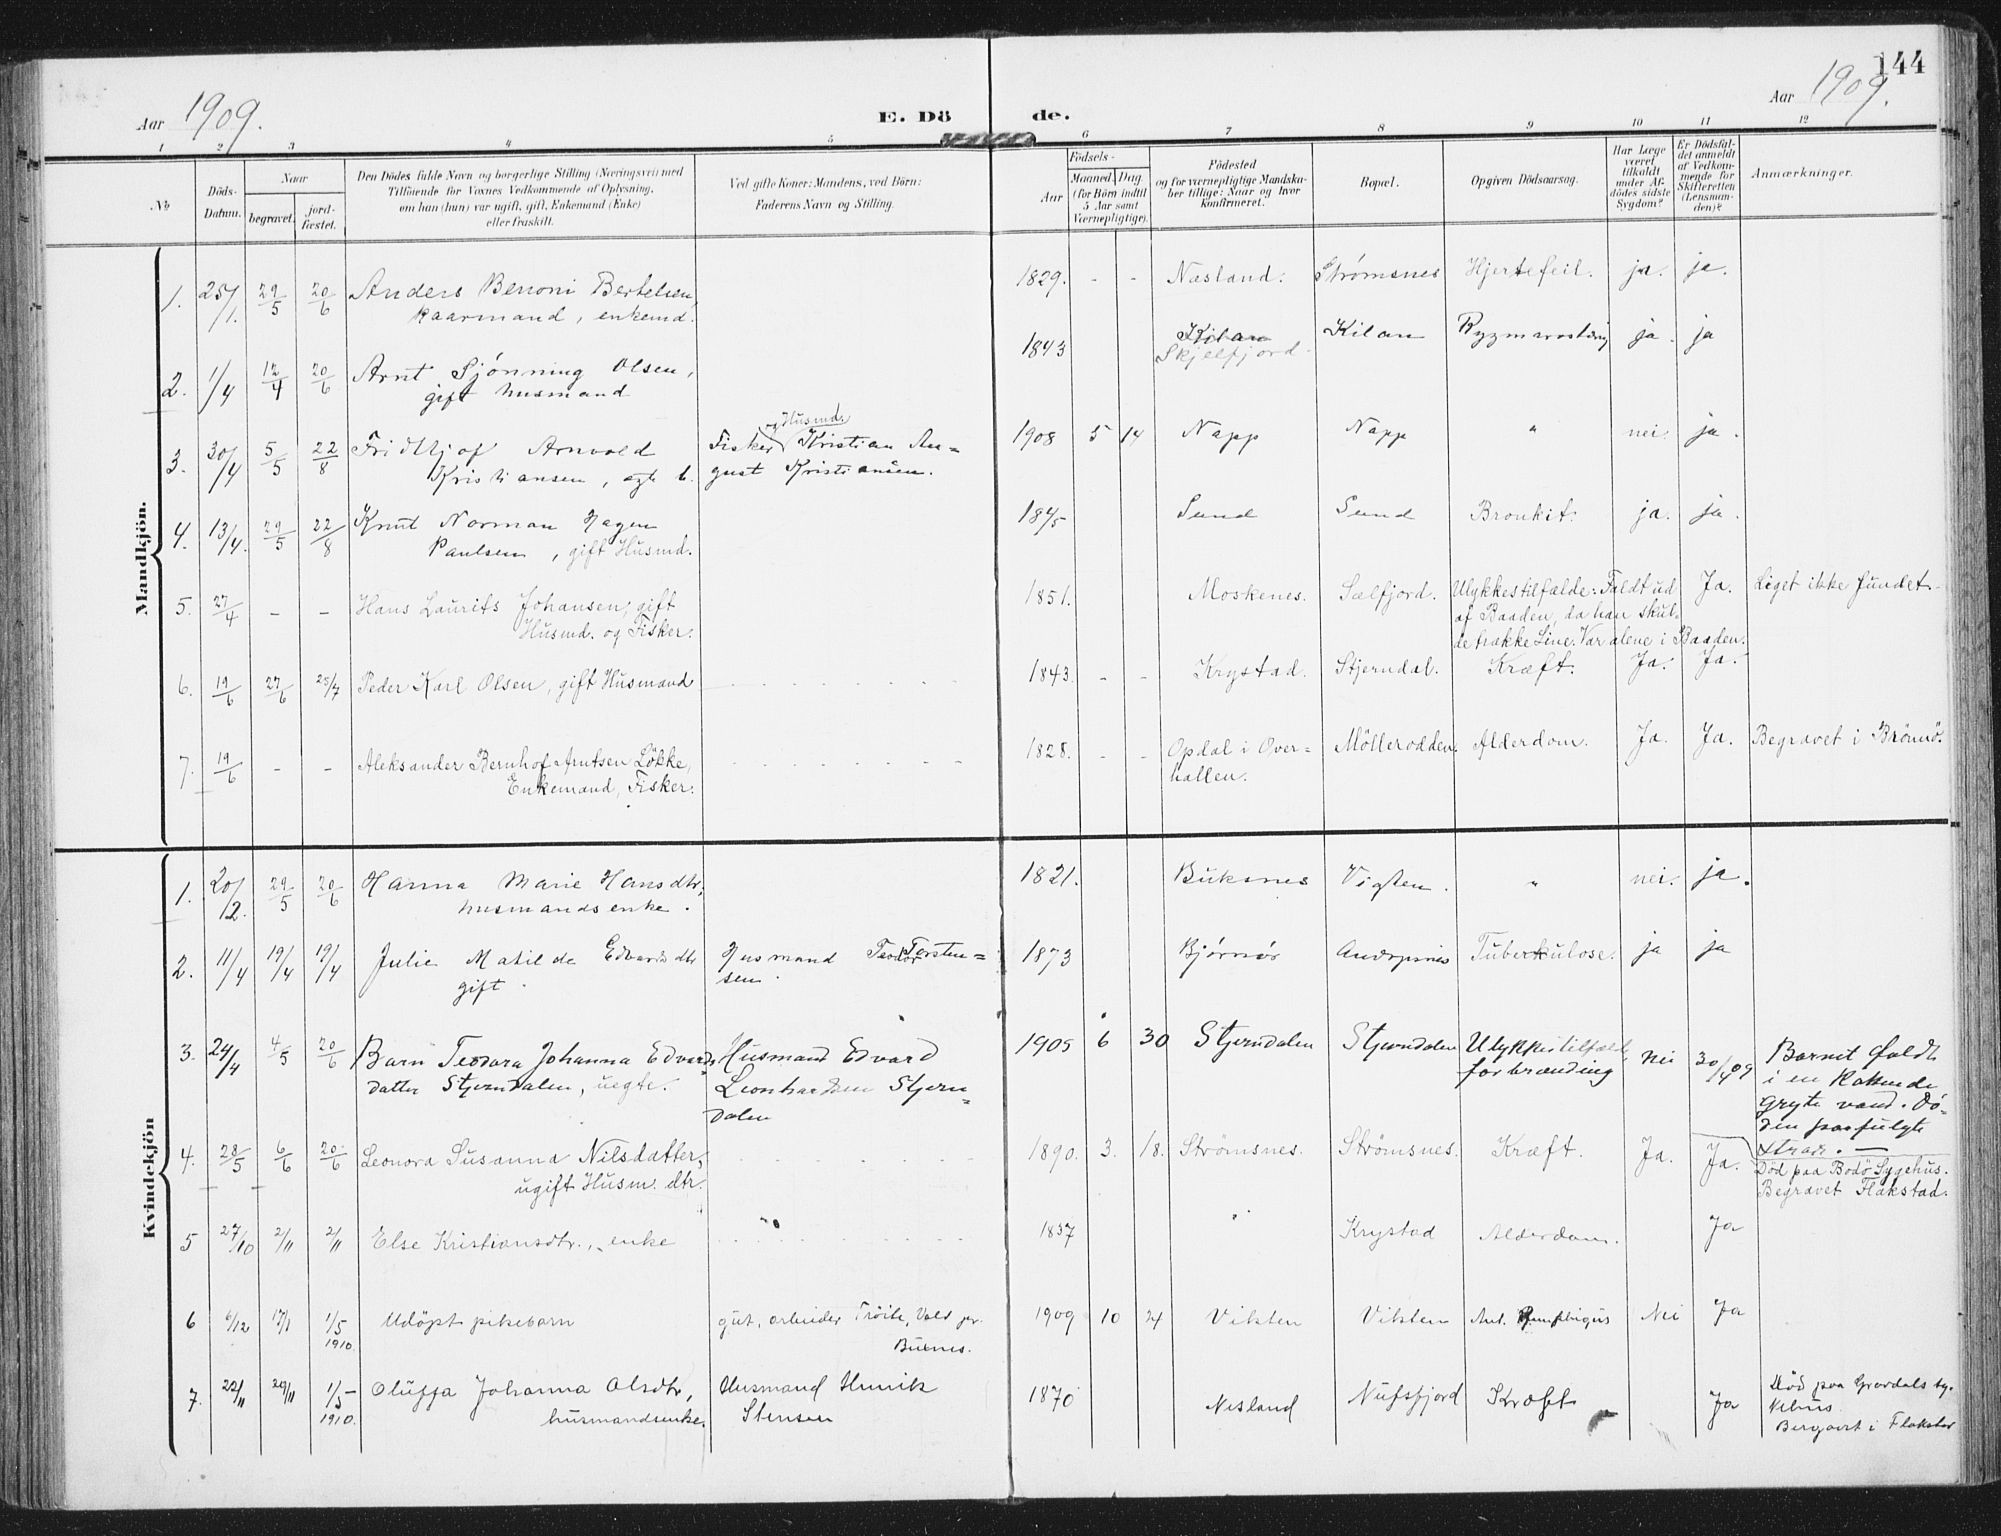 144
Aar 1909.
E. Dö de.
Aar 1909.
1 2 3 4 5 6 7 8 9 10 11 12
No
Döds-Datum.
Naar
begravet.
jordfæstet.
Den Dödes fulde Navn og borgerlige Stilling (Næringsvei) med
Tilföiende for Voxnes Vedkommende af Oplysning,
om han (hun) var ugift, gift, Enkemand (Enke)
eller fraskilt.
Ved gifte Koner: Mandens, ved Börn:
Faderens Navn og Stilling.
Födsels-
Aar
Maaned. Dag.
(for Börn indtil
5 Aar samt
Værnepligtige).
Födested
og for værnepligtige Mandska-
ber tillige: Naar og hvor
Konfirmeret.
Bopæl.
Opgiven Dödsaarsag.
Har Læge
været
tilkaldt
under Af-
dödes sidste
Sygdom?
Er Dödsfal-
det anmeldt
af Vedkom-
mende for
Skifteretten
(Lensman-
den)?
Anmærkninger.
Mandkjön.
1. 25/1. 29/5 20/6 Anders Benoni Bertelsen, 1829. - - Næsland. Strømsnes Hjertefeil. ja. ja.
kaarmand, enkemd.
2. 1/4 12/4 20/6 Arnt Sjønning Olsen, 1843 Kilan Kilan ja. ja
gift husmand Skjelfjord
3. 30/4 5/5 22/8 Fridthjof Arnvold Fisker og Husmd. Kristian Au= 1908 5 14 Napp Napp " nei. ja.
Kristiansen, ægte b. gust Kristiansen.
4. 13/4. 29/5 22/8 Knut Norman Hagen 1845 Sund Sund Bronkit. ja. ja.
Paulsen, gift Husmd.
5. 27/4 - - Hans Laurits Johansen, gift 1851. Moskenes. Sælfjord. Ulykkestilfælde: Faldt ud Ja. Liget ikke fundet.
Husmd. og Fisker. af Baaden, da han skul-
de trække Line. Var alene i Baaden.
6. 19/6 27/6 25/7 Peder Karl Olsen, gift Husmand 1843. - - Krystad. Stjerndal. Kræft. Ja. Ja.
7. 19/6 - - Aleksander Bernhof Arntsen Løkke, 1828. - - Opdal i Over= Möllerodden. Alderdom. Ja. Ja. Begravet i Brönnö.
Enkemand, Fisker. hallen.
Kvindekjön
1. 20/12. 29/5 20/6 Hanna Marie Hansdtr, 1821. Buksnes Vigten. " nei. ja.
husmandsenke.
2. 11/4 19/4 19/4 Julie Matilde Edvardsdtr Husmand Teodor Torsten= 1873 Bjørnør Tuberkulose. ja ja
gift. sen.
3. 24/4 4/5 20/6 Barn Teodora Johanna Edvards Husmand Edvard 1905 6 30 Stjerndalen Stjerndalen Ulykkestilfælde, nei 30/4 09 Barnet faldt
datter Stjerndalen, uegte. Leonhardsen Stjern= forbrænding i en kokende
dalen gryte vand. Dö-
den paafulgte
straks. —
4. 28/5 6/6 20/6 Leonora Susanna Nilsdatter, 1890. 3. 18. Strömsnes. Strömsnes. Kræft. Ja. Ja. Död paa Bodö Sygehus.
ugift Husm. dtr. Begravet Flakstad.
5 27/10 2/11 2/11 Else Kristiansdtr., enke 1837 " Krystad Alderdom. Ja
6 6/12 17/1 1/5 1910. Udöpt pikebarn gut, arbeider Tröite, Vold pr. 1909 10 24 Vikten Vikten Ant. Pemphigus Nei Ja
Buxnes.
7. 22/11 29/11 1/5- 1910. Olufga Johanna Olsdtr, Husmand Henrik 1870 Nesland Nufsfjord Kræft Ja Död paa Gravdals sy-
husmandsenke. Stensen kehus.
Bergavet i Flakstad